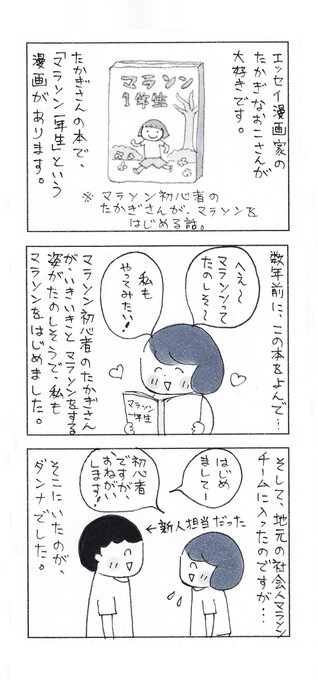 エッセイ漫画家の
たかぎなおこさんが
大好きです。
マラソン
1年生
たかぎさんの本で、
「マラソン一年生」という
漫画があります。
※マラソン初心者の
たかぎさんが、マラソンを
はじめる話。
数年前に、この本をよんで…
へぇ〜
マラソンって
たのしそ〜
私も
やってみたい!
マラソン
1年生
マラソン初心者のたかぎさん
が、いきいきとマラソンをする
姿がたのしそうで、私も
マラソンをはじめました。
そして、地元の社会人マラソン
チームに入ったのですが…
はじめ
ましてー
初心者
ですが、
おねがい
します!
←新人担当だった
そこにいたのが、
ダンナでした。